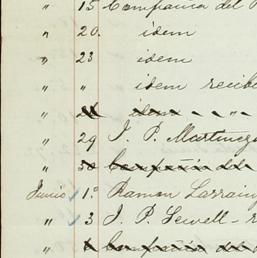 " 15 Compañia del
" 20. idem
" 23 idem
" " idem recibe
" idem " "
" 29 J. P. Martinez
" 30 Compañia del
Junio 1.º Ramon Larrain
" 3 J. P. Sewell -
" Compañia del